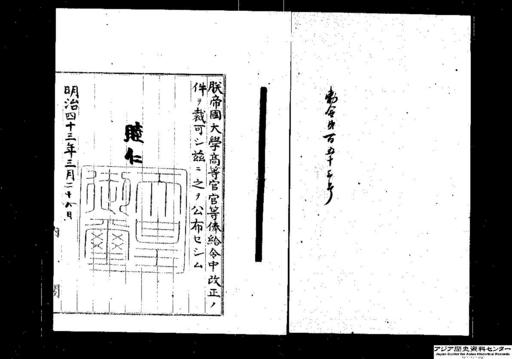 勅令第百五十号
朕帝國大學高等官官等俸給令中改正ノ
件ヲ裁可シ茲ニ之ヲ公布セシム
睦仁
天皇御璽
明治四十三年三月二十日
内閣
アジア歴史資料センター
Japan Center for Asian Historical Records